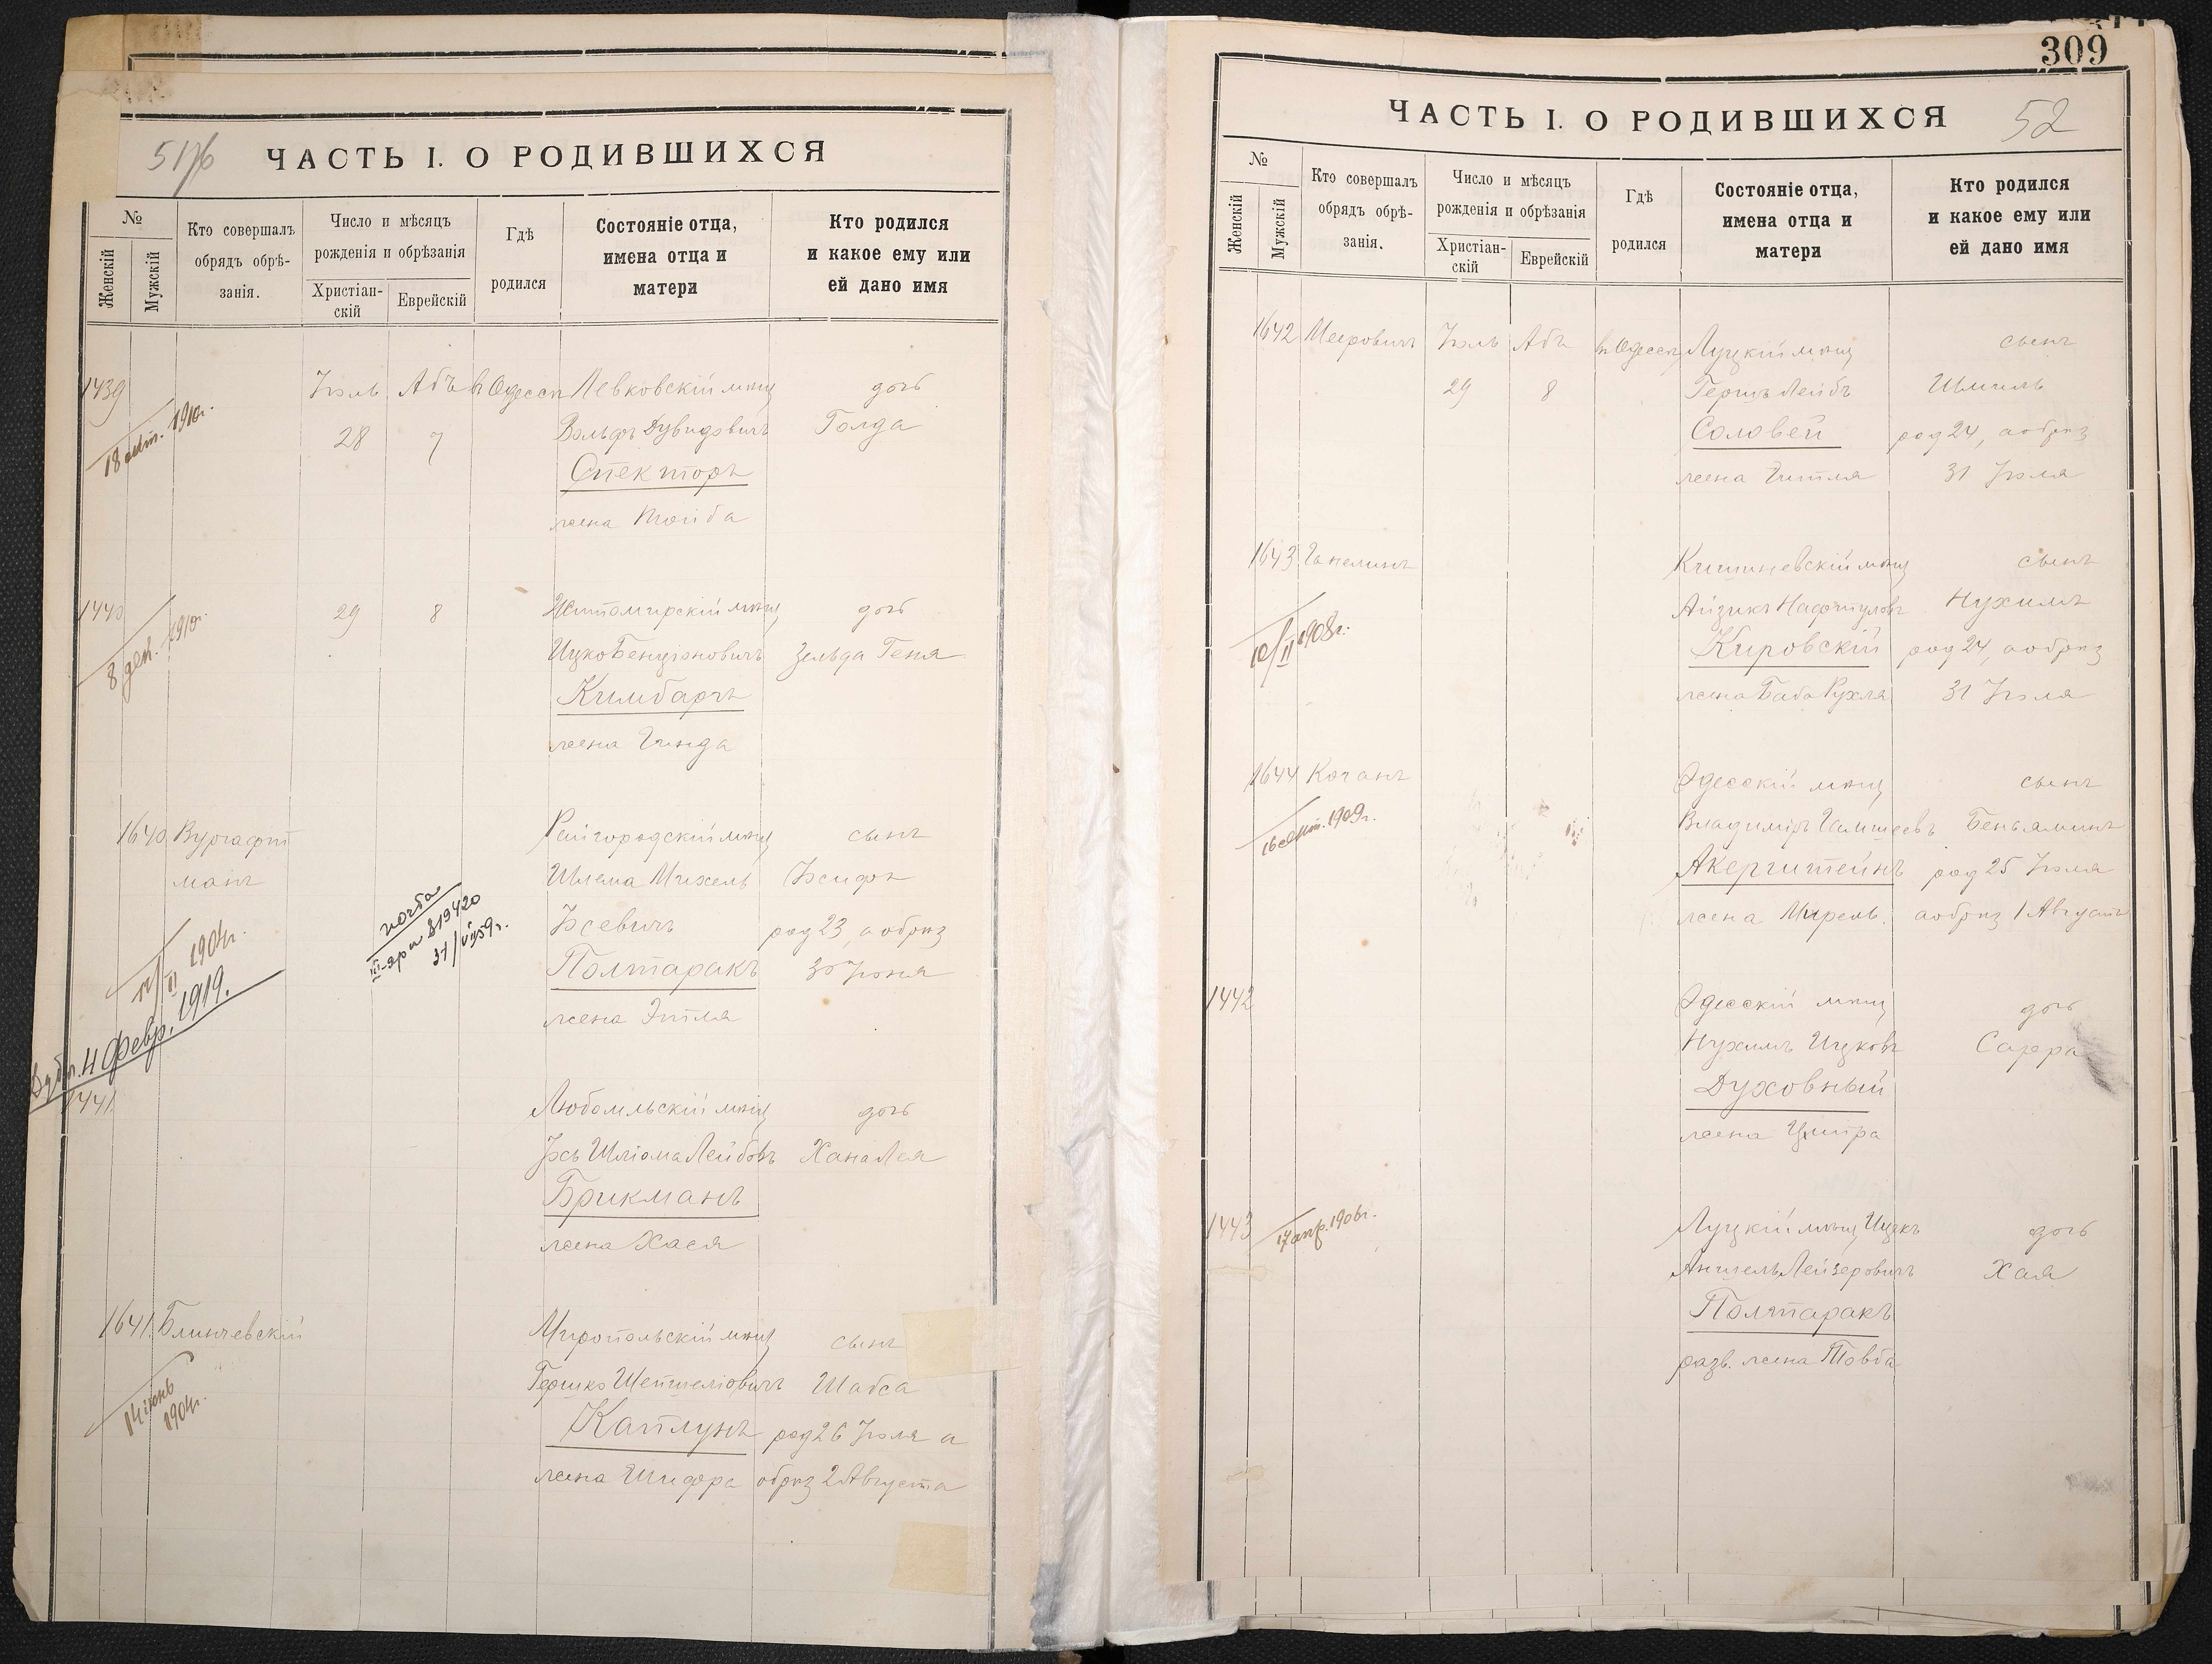 51/б
ЧАСТЬ I. О РОДИВШИХСЯ
№
Женскій
Мужскій
Кто совершалъ
обрядъ обрѣ-
занія.
Число и мѣсяцъ
рожденія и обрѣзанія
Христіан-
скій
Еврейскій
Гдѣ
родился
Состояніе отца,
имена отца и
матери
Кто родился
и какое ему или
ей дано имя
1439
18 окт. 1910г.
Іюль
28
Абъ
7
въ Одессѣ
Левковскій мѣщ
Вольфъ Дувидовичъ
Спекторъ
жена Тойба
дочь
Голда
1440
8 дек. 1910г.
29
8
Житомирскій мѣщ
Ицко Бенціоновичъ
Кимбаръ
жена Гинда
дочь
Зельда Геня
1640
Вургафт
манъ
1904г.
4 Февр. 1919.
31/VII 59г.
Райгородскій мѣщ
Шлема Михель
Іосевичъ
Полтаракъ
жена Этля
сынъ
Іосифъ
род 23, а обрѣз
30 Іюля
1441
Любомльскій мѣщ
Іось Шлiома Лейбовъ
Брикманъ
жена Хася
дочь
Хана Лея
1641
Блинчевскій
14 іюнь
1904г.
Миропольскій мѣщ
Гершко Шепшеліовичъ
Каплунъ
жена Шифра
сынъ
Шабса
род 26 Іюля а
обрѣз 2 Августа
309
ЧАСТЬ I. О РОДИВШИХСЯ
52
№
Женскій
Мужскій
Кто совершалъ
обрядъ обрѣ-
занія.
Число и мѣсяцъ
рожденія и обрѣзанія
Христіан-
скій
Еврейскій
Гдѣ
родился
Состояніе отца,
имена отца и
матери
Кто родился
и какое ему или
ей дано имя
1642
Мееровичъ
Іюль
29
Абъ
8
въ Одессѣ
Луцкій мѣщ
Гершъ Лейбъ
Соловей
жена Гитля
сынъ
Шмиль
род 24, а обрѣз
31 Іюля
1643
Гапелинъ
10/II 1908г.
Кишиневскій мѣщ
Айзикъ Нафтуловъ
Кировскій
жена Баба Рухля
сынъ
Нухимъ
род 24, а обрѣз
31 Іюля
1644
Коганъ
16 окт. 1909г.
Одесскій мѣщ
Владиміръ
Акерштейнъ
жена Мирель
сынъ
Беньяминъ
род 25 Іюля
а обрѣз 1 Августа
1442
Одесскій мѣщ
Нухимъ Ицковъ
Духовный
жена Ципра
дочь
Сарра
1443
17 апр. 1906г.
Луцкій мѣщ Ицекъ
Аншель Лейзеровичъ
Полтаракъ
разв. жена Товба
дочь
Хая